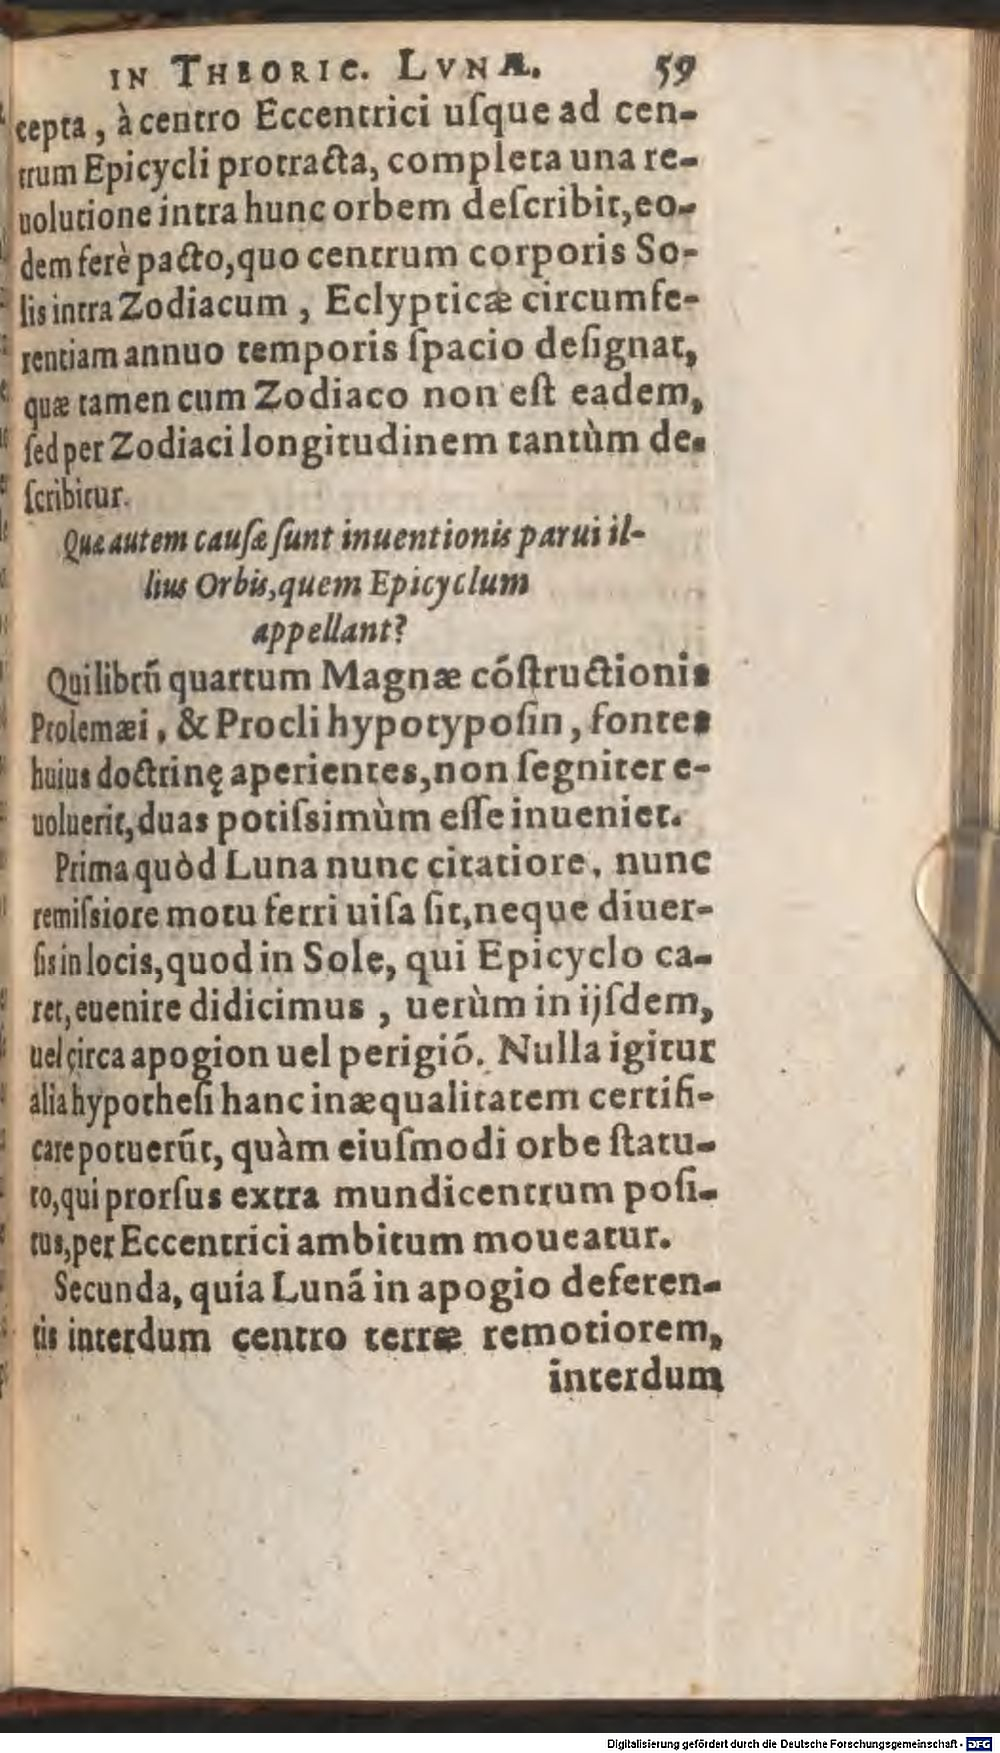 IN THEORIC. LVNÆ. 59
cepta, à centro Eccentrici uſque ad cen-
trum Epicycli protracta, completa una re-
uolutione intra hunc orbem deſcribit, eo-
dem ferè pacto, quo centrum corporis So-
lis intra Zodiacum, Eclypticæ circumfe-
rentiam annuo temporis ſpacio deſignat,
quæ tamen cum Zodiaco non eſt eadem,
ſed per Zodiaci longitudinem tantùm de-
ſcribitur.
Quæ autem cauſæ ſunt inuentionis parui il-
lius Orbis, quem Epicyclum
appellant?
Qui librũ quartum Magnæ cõſtructionis
Ptolemæi, & Procli hypotypoſin, fontes
huius doctrinę aperientes, non ſegniter e-
uoluerit, duas potiſsimùm eſſe inueniet.
Prima quòd Luna nunc citatiore, nunc
remiſsiore motu ferri uiſa ſit, neque diuer-
ſis in locis, quod in Sole, qui Epicyclo ca-
ret, euenire didicimus, uerùm in ijſdem,
uel circa apogion uel perigiõ. Nulla igitur
alia hypotheſi hanc inæqualitatem certifi-
care potuerũt, quàm eiuſmodi orbe ſtatu-
to, qui prorſus extra mundi centrum poſi-
tus, per Eccentrici ambitum moueatur.
Secunda, quia Lunã in apogio deferen-
tis interdum centro terræ remotiorem,
interdum
Digitalisierung gefördert durch die Deutsche Forschungsgemeinschaft - DFG